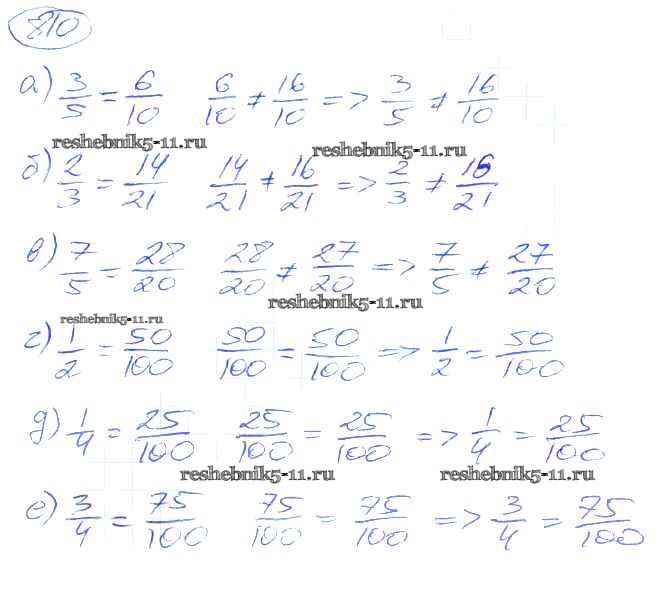 810
а) 3/5 = 6/10 6/10 ≠ 16/10 => 3/5 ≠ 16/10
reshebnik5-11.ru reshebnik5-11.ru
б) 2/3 = 14/21 14/21 ≠ 16/21 => 2/3 ≠ 16/21
в) 7/5 = 28/20 28/20 ≠ 27/20 => 7/5 ≠ 27/20
reshebnik5-11.ru
reshebnik5-11.ru
г) 1/2 = 50/100 50/100 = 50/100 => 1/2 = 50/100
д) 1/4 = 25/100 25/100 = 25/100 => 1/4 = 25/100
reshebnik5-11.ru reshebnik5-11.ru
е) 3/4 = 75/100 75/100 = 75/100 => 3/4 = 75/100